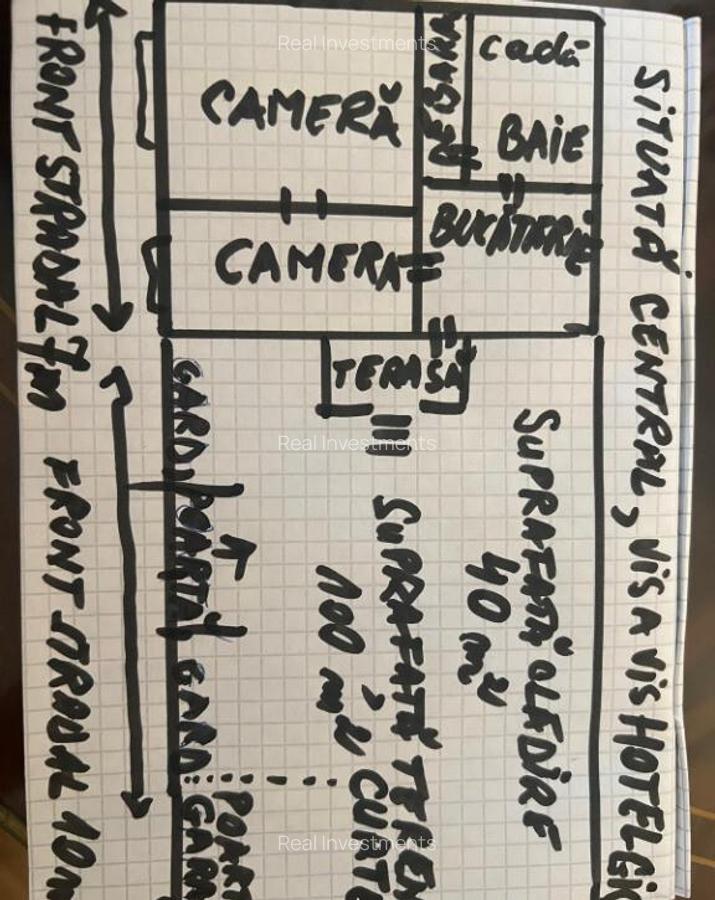 SITUATĂ CENTRAL, VIS A VIS HOTEL
cadă
BAIE
CAMERĂ
BUCĂTĂRIE
CAMERA
TERASĂ
SUPRAFAȚĂ CLĂDIRE
40 m²
SUPRAFAȚĂ TEREN
100 m² CURTE
GARD POARTĂ GARD
FRONT STRADAL 7m
FRONT STRADAL 10m
Real Investments
Real Investments
Real Investments